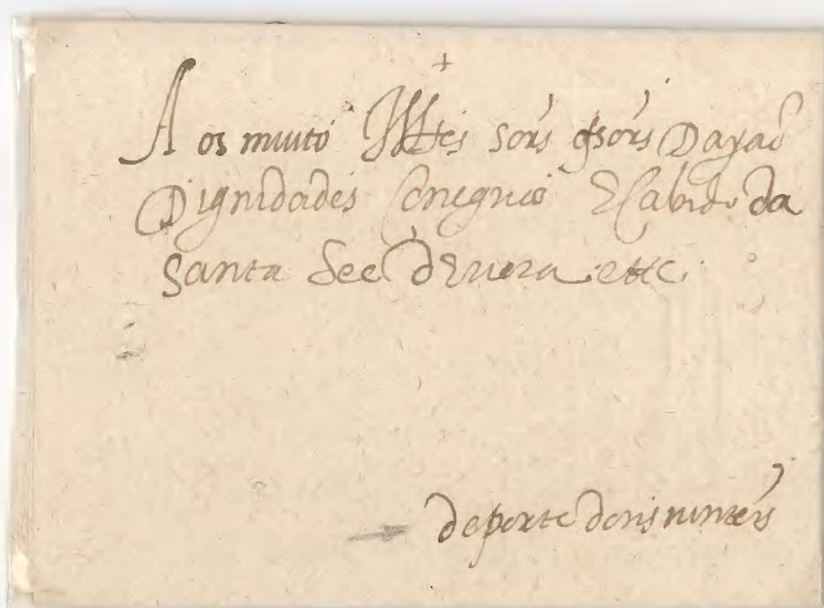 +
Aos muito Illes sors os sors Dayaõ
Dignidades Conegos E Cabido da
Santa See dEuora. ettc.
de porte dous vinteis